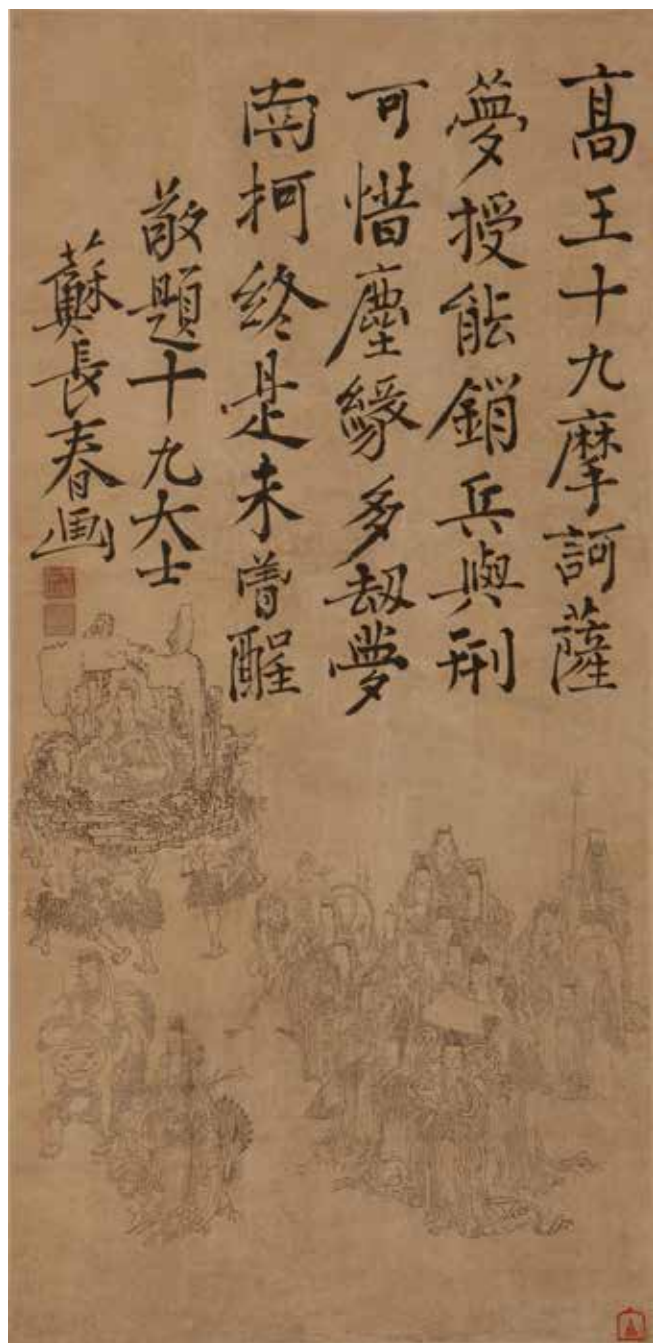 高王十九摩訶薩
夢授能銷兵與刑
可惜塵緣多劫夢
南柯終是未曾醒
敬題十九大士
蘇長春画